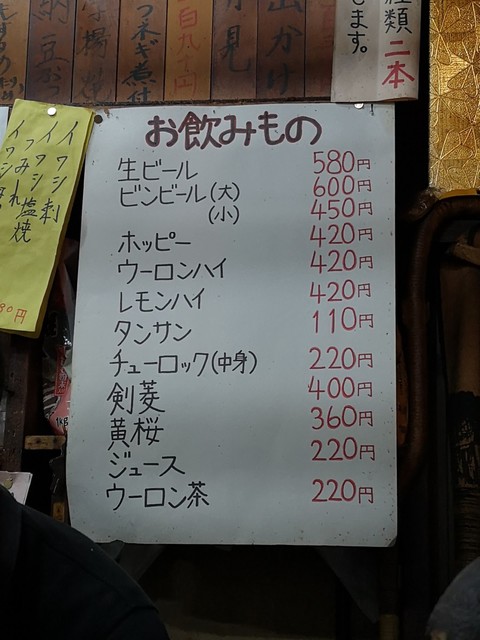 お飲みもの
生ビール 580円
ビンビール(大) 600円
(小) 450円
ホッピー 420円
ウーロンハイ 420円
レモンハイ 420円
タンサン 110円
チューロック(中身) 220円
剣菱 400円
黄桜 360円
ジュース 220円
ウーロン茶 220円
類二本
します。
出かけ
月見
つ米ギ煮付
納豆
イワシ刺
イワシ塩焼
イワシつみれ
80円